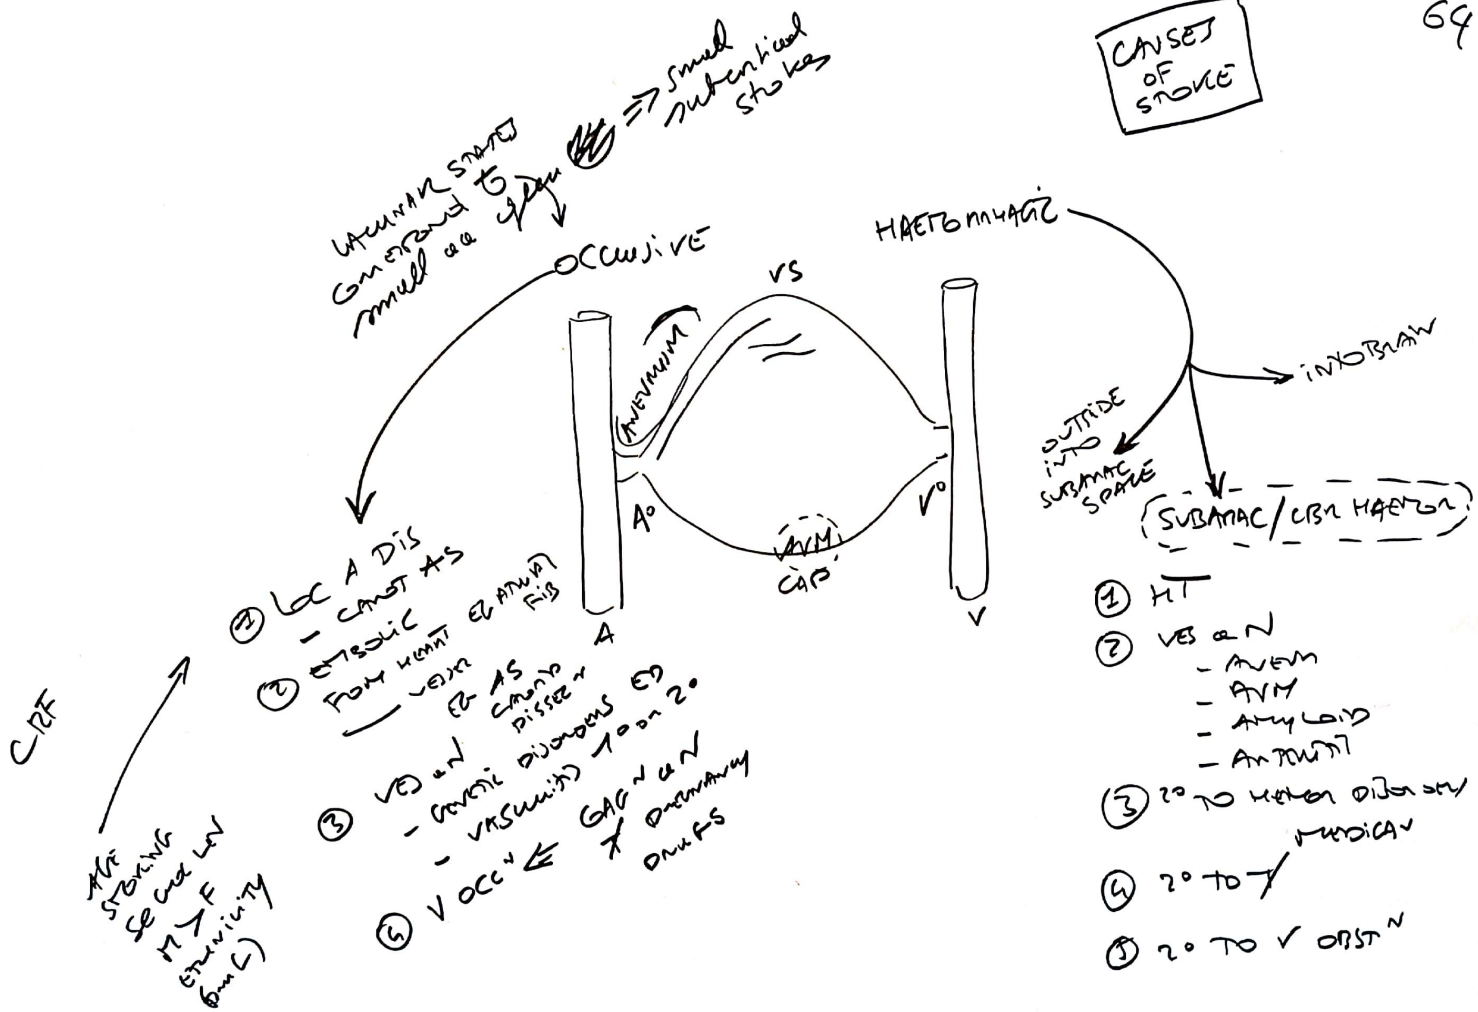 64
CAUSES
OF
STROKE
LACUNAR STATES
correspond to
small
=> small
subcortical
strokes
OCCLUSIVE
HAEMORRHAGIC
VS
ANEURYSM
INTO BRAIN
OUTSIDE
INTO
SUBARAC
SPACE
SUBARAC/CBR HAEMOR
A°
V°
AVM
CAP
A
V
① LOC A DIS
- CAROT AS
② EMBOLIC
FROM HEART EG ATRIAL
FIB
VESSEL
EG AS
CAROTID
DISSECᴺ
③ VES
- GENETIC DISORDERS ED
- VASCULITIS 1° OR 2°
④ V OCCᴺ <= COAGᴺ
PREGNANCY
DRUGS
CRF
AGE
SMOKING
M > F
ETHNICITY
① HT
② VES
- ANEUR
- AVM
- AMYLOID
- ARTERIT
③ 2° TO HEMOR DISORDERS/
MEDICAᴺ
④ 2° TO
⑤ 2° TO V OBSTᴺ